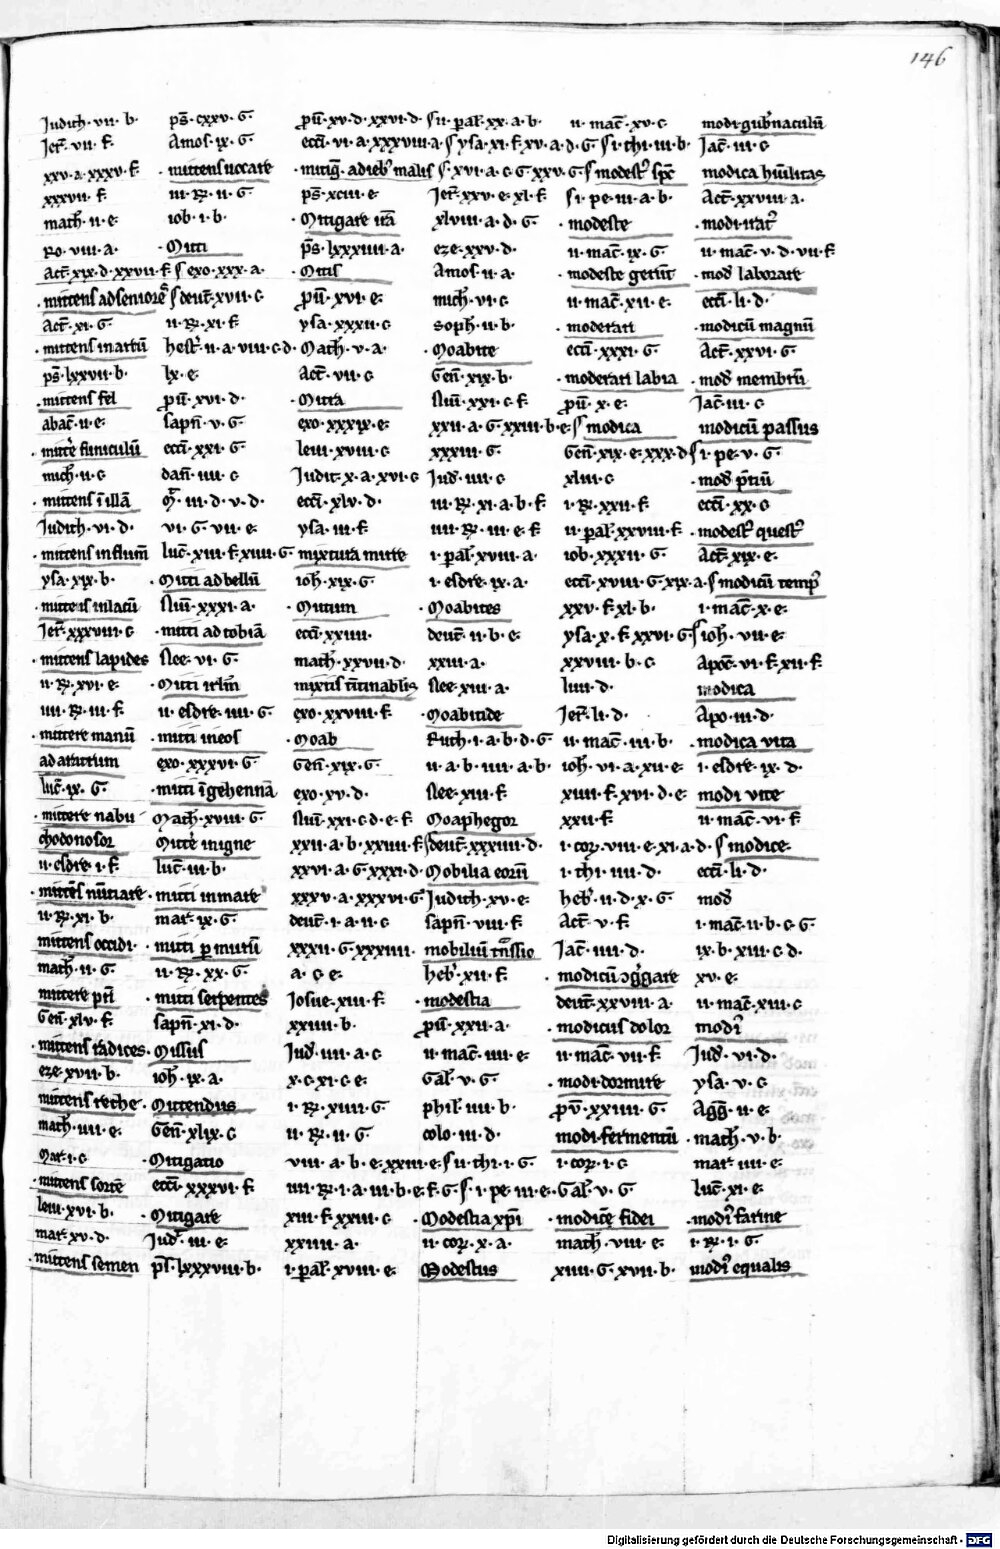 146
Judith · vii · b ·
Jer̄ · vii · f ·
xxv · a · xxxv · f ·
xxxvii · f ·
math · ii · e ·
Ro · viii · a ·
Act̄ · xix · d · xxvii · f ·
· mittens ad seniorē
Act̄ · xi · G ·
· mittens in artūm
ps̄ · lxxvii · b ·
· mittens fel
abac̄ · ii · e ·
· mittē funiculū
mich̄ · ii · c
· mittens ī illā
Judith · vi · d ·
· mittens in flum̄
ysa · xix · b ·
· mittens in lacū
Jer̄ · xxxviii · c
· mittens lapides
ii · R · xvi · e ·
iiii · R · iii · f ·
· mittere manū
ad aratrum
luc̄ · ix · G ·
· mittere nabu
chodonosor
ii · esdre · i · f
· mittēs nūtiare
ii · R · xi · b ·
mittens occidi ·
math̄ · ii · G ·
mittere ptī
Gen̄ · xlv · f ·
· mittens radices ·
eze · xvii · b ·
mittens rethe
math̄ · iiii · e ·
Mar · i · c
· mittens sortē
leui · xvi · b ·
mar̄ · xv · d ·
· mittens semen
ps̄ · cxxv · G ·
Amos · ix · G ·
· mittens uccare
iii · R · ii · G ·
iob · i · b ·
· Mitti
ſ exo · xxx · a ·
ſ deut̄ · xvii · c
ii · R · xi · f ·
hest̄ · ii · a · viii · c · d ·
lx · e ·
pro᷑ · xvi · d ·
sapn̄ · v · G ·
ecci̅ · xxi · G
dan̄ · iiii · c
iii · d · v · d ·
vi · G · vii · e ·
luc̄ · xiii · f · xiiii · G ·
· Mitti ad bellū
Nu̅ · xxxi · a ·
· mitti ad tobiā
Nee · vi · G ·
· Mitti irlm̄
ii · esdre · iiii · G ·
· mitti in eos
exo · xxxvi · G
· mitti ī gehennā
Math̄ · xviii · G
Mittē in igne
luc̄ · iii · b ·
· mitti in mare
mar̄ · ix · G ·
· mitti p murū
ii · R · xx · G ·
· mitti serpentes
sapn̄ · xi · d ·
· Missus
ioh̄ · ix · a ·
· Mittendus
Gen̄ · xlix · c
· Mitigatio
ecci̅ · xxxvi · f ·
· Mitigare
Jud̄ · iii · e ·
ps̄ · lxxxviii · b ·
pro᷑ · xv · d · xxvi · d ·
ecci̅ · vi · a · xxxviii · a ·
· mitig̅ · ad ieb᷑ malis
ps̄ · xciii · e ·
· Mitigare irā
ps̄ · lxxxiiii · a ·
· Mitis
pro᷑ · xvi · e ·
ysa · xxxii · c
Math̄ · v · a ·
Act̄ · vii · c
· Mitra
exo · xxxix · e ·
leui · xviii · c
Judit · x · a · xvi · c
ecci̅ · xlv · d ·
ysa · iii · f ·
mixtura mirre
ioh̄ · xix · G ·
· Mutum
ecci̅ · xxiiii ·
math̄ · xxvii · d ·
mixtis tītinablis
exo · xxviii · f ·
· Moab
Gen̄ · xix · G ·
exo · xv · d ·
Nu̅ · xxi · c · d · e · f ·
xxii · a · b · xxiiii · f
xxvi · a · G · xxxi · d ·
xxxv · a · xxxvi · G
deut̄ · i · a · ii · c
xxxii · G · xxxiiii ·
a · c · e ·
Josue · xiii · f ·
xxiiii · b ·
Jud̄ · iii · a · c
x · c · xi · c · e ·
i · R · xiiii · G ·
ii · R · ii · G ·
viii · a · b · e · xxiii · e ·
iiii · R · i · a · iii · b · e · f · G ·
xiii · f · xxiii · c
xxiiii · a ·
i · pal̄ · xviii · e ·
ſ ii · pal̄ · xx · a · b ·
ſ ysa · xi · f · xv · a · d · G
ſ · xvi · a · c · G · xxv · G ·
Jer̄ · xxv · e · xl · f ·
xlviii · a · d · G ·
eze · xxv · d ·
Amos · ii · a ·
mich̄ · vi · c
soph̄ · ii · b ·
· Moabite
Gen̄ · xix · b ·
Nu̅ · xxi · c · f ·
xxii · a · G · xxiii · b · e ·
xxxiii · G ·
Jud̄ · iii · c
iii · R · xi · a · b · f ·
iiii · R · iii · e · f ·
i · pal̄ · xviii · a ·
i · esdre · ix · a ·
· Moabites
deut̄ · ii · b · e ·
xxiii · a ·
Nee · xiii · a ·
· Moabitide
Ruth · i · a · b · d · G
ii · a · b · iiii · a · b ·
Nee · xiii · f ·
Moaphegor
ſ deut̄ · xxxiiii · d ·
Mobilia eorū
Judith · xv · e ·
sapn̄ · viii · f ·
mobiliū tn̄slio
heb᷑ · xii · f ·
· modestia
pro᷑ · xxii · a ·
ii · mac̄ · iiii · e ·
Gal̄ · v · G ·
phil̄ · iiii · b ·
colo · iii · d ·
ſ ii · thi · i · G ·
ſ · i · pe · iii · e ·
· Modestia xpī
ii · cor · x · a ·
Modestus
ii · mac̄ · xv · c
ſ i · thi · iii · b ·
ſ modest᷑ spc̄
ſ i · pe · iii · a · b ·
· modeste
ii · mac̄ · ix · G ·
· modeste gerūt
ii · mac̄ · xii · e ·
· moderati
ecci̅ · xxxi · G ·
· moderati labia
pro᷑ · x · e ·
ſ modica
Gen̄ · xix · e · xxx · d
xliii · c
i · R · xxii · f ·
ii · pal̄ · xxviii · f ·
iob · xxxii · G ·
ecci̅ · xviii · G · xix · a ·
xxv · f · xl · b ·
ysa · x · f · xxvi · G ·
xxviii · b · c
liiii · d ·
Jer̄ · li · d ·
ii · mac̄ · iii · b ·
ioh̄ · vi · a · xii · e ·
xiiii · f · xvi · d · e ·
xxii · f ·
i · cor · viii · e · xi · a · d ·
i · thi · iiii · d ·
heb᷑ · ii · d · x · G ·
Act̄ · v · f ·
Jac̄ · iiii · d ·
· modicū ɔg᷑gare
deut̄ · xxviii · a ·
· modicus dolor
ii · mac̄ · vii · f ·
· modi · dormire
pro᷑ · xxiiii · G ·
modi · fermentū
i · cor · i · c
Gal̄ · v · G ·
· modice fidei
math̄ · viii · e ·
xiiii · G · xvii · b ·
modi · gub᷑naculū
Jac̄ · iii · c
modica hūilitas
Act̄ · xxviii · a ·
· modi · irat᷑
ii · mac̄ · v · d · vii · f ·
· mod̄ laborare
ecci̅ · li · d ·
· modicū magnū
Act̄ · xxvi · G ·
· mod̄ membrū
Jac̄ · iii · c
modicū passus
ſ i · pe · v · G ·
· mod̄ p̄tiū
ecci̅ · xx · c
· modest᷑ quest᷑
Act̄ · xix · e ·
ſ modicū temp᷑
i · mac̄ · x · e ·
ſ ioh̄ · vii · e ·
Apoc̄ · vi · f · xii · f ·
modica
Apo · iii · d ·
· modica vita
i · esdre · ix · d ·
modi vite
ii · mac̄ · vi · f ·
ſ modice
ecci̅ · li · d ·
mod̄
i · mac̄ · ii · b · c · G ·
ix · b · xiii · c · d ·
xv · e ·
ii · mac̄ · xiii · c
modī
Jud̄ · vi · d ·
ysa · v · c
Agg̅ · ii · e ·
· math̄ · v · b ·
mar̄ · iiii · e ·
luc̄ · xi · e ·
· modī farine
i · R · i · G ·
modī equalis
Digitalisierung gefördert durch die Deutsche Forschungsgemeinschaft - DFG